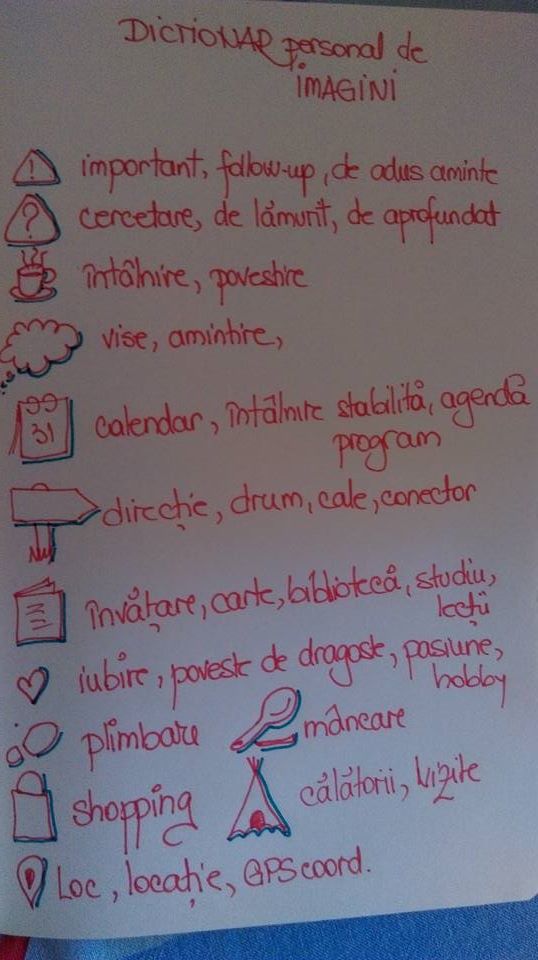 DICTIONAR personal de
IMAGINI
! important, follow-up, de adus aminte
? cercetare, de lămurit, de aprofundat
întâlnire, povestire
vise, amintire,
31 calendar, întâlnire stabilită, agendă
program
direcție, drum, cale, conector
învățare, carte, bibliotecă, studiu,
lecții
iubire, poveste de dragoste, pasiune,
hobby
plimbare mâncare
shopping călătorii, vizite
Loc, locație, GPS coord.